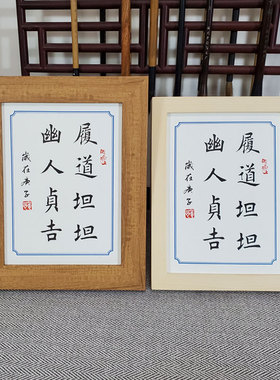 履道坦坦
幽人貞吉
歲在庚子
履道坦坦
幽人貞吉
歲在庚子